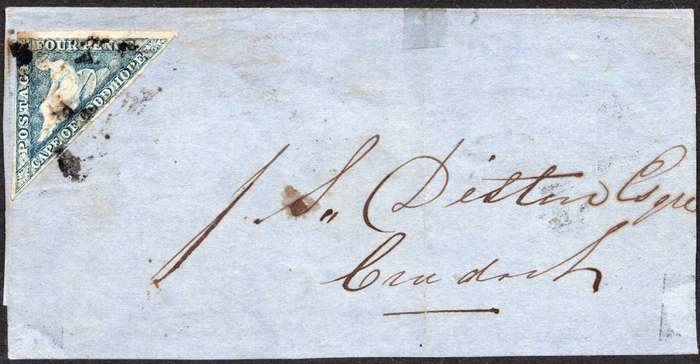 FOUR PENCE
POSTAGE
CAPE OF GOOD HOPE
S" Distin Esqre
Cradock